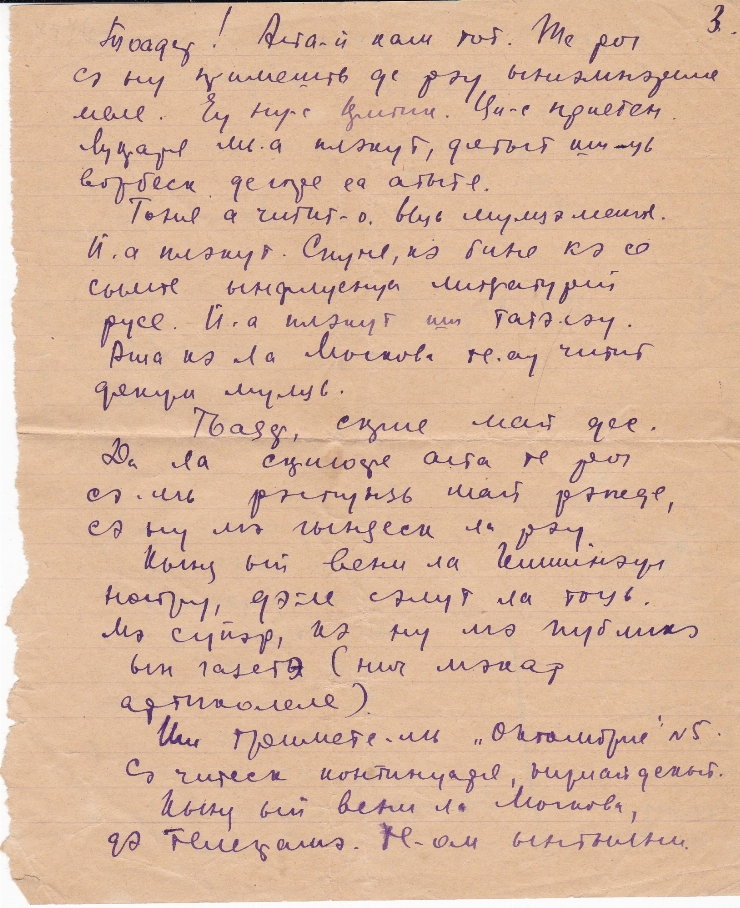 3.
Тоадер! Аста-й кам тот. Те рог
сэ ну примешть де рэу ынсэмнэриле
меле. Еу ну-с критик. Ци-с приетен.
Лукраря мь-а плэкут, дятыт ши-ць
ворбеск деспре еа атыта.
Тоня а читит-о. мулцэмеште.
Й-а плэкут. Спуне, кэ бине кэ се
сымте ынфлуенца литературий
русе. Й-а плэкут ши татэлуй.
Аша кэ ла Москова те-ау читит
дякум мулць.
Тоадер, скрие май дес.
Да ла скрисоаре аста те рог
сэ-мь рэспунзь май рэпеде,
сэ ну мэ гындеск ла рэу.
Кынд ый вени ла Кишинэул
ностру, дэ-ле сэлут ла тоць.
Мэ супэр, кэ ну мэ публикэ
ын газетэ (нич мэкар
артиколеле).
Ши тримете-мь „Октомбрие" №5.
Сэ читеск континуаря,
Кынд ый вени ла Москова,
дэ телеграмэ. Те-ом ынтылни.